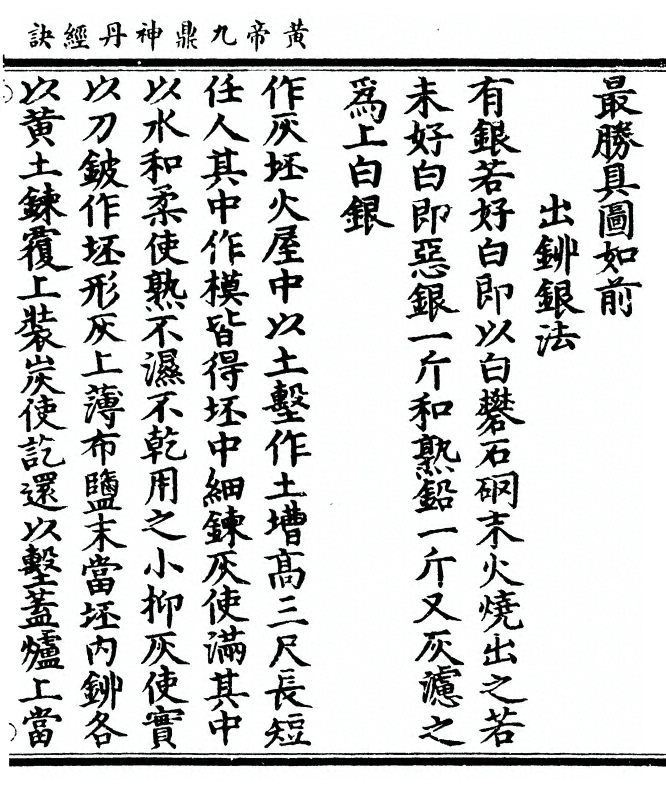 黃帝九鼎神丹經訣
最勝具圖如前
出鉚銀法
有銀若好白即以白礬石硇末火燒出之若
未好白即惡銀一斤和熟鉛一斤又灰濾之
爲上白銀
作灰坯火屋中以土墼作土墤高三尺長短
任人其中作模皆得坯中細鍊灰使滿其中
以水和柔使熟不濕不乾用之小抑灰使實
以刀鈹作坯形灰上薄布鹽末當坯內鉚各
以黃土鍊覆上裝炭使訖還以墼蓋爐上當